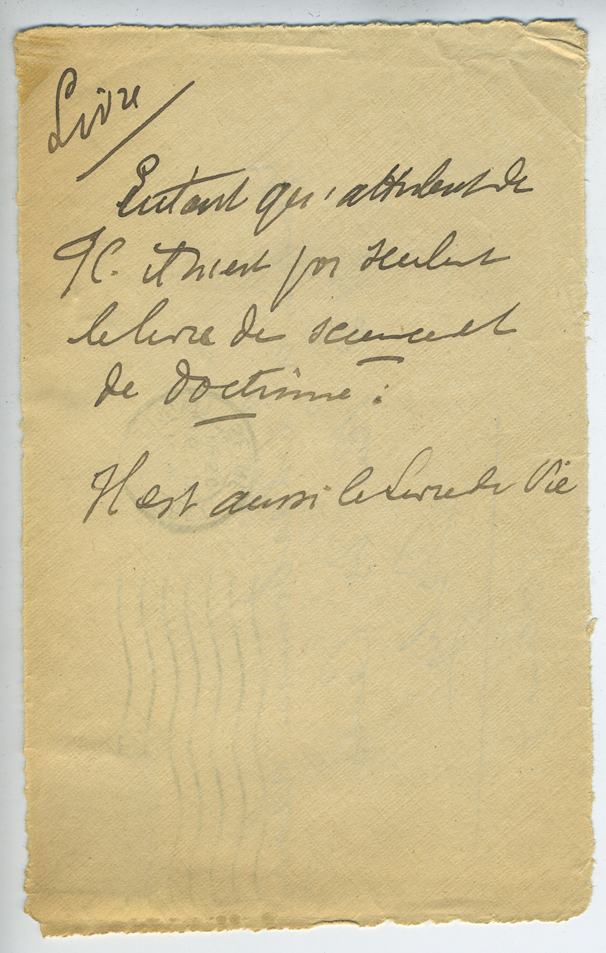 Livre
Entant qu'attribut de
JC. il n'est pas seulent
le livre de science et
de doctrine :
Il est aussi le Livre de Vie